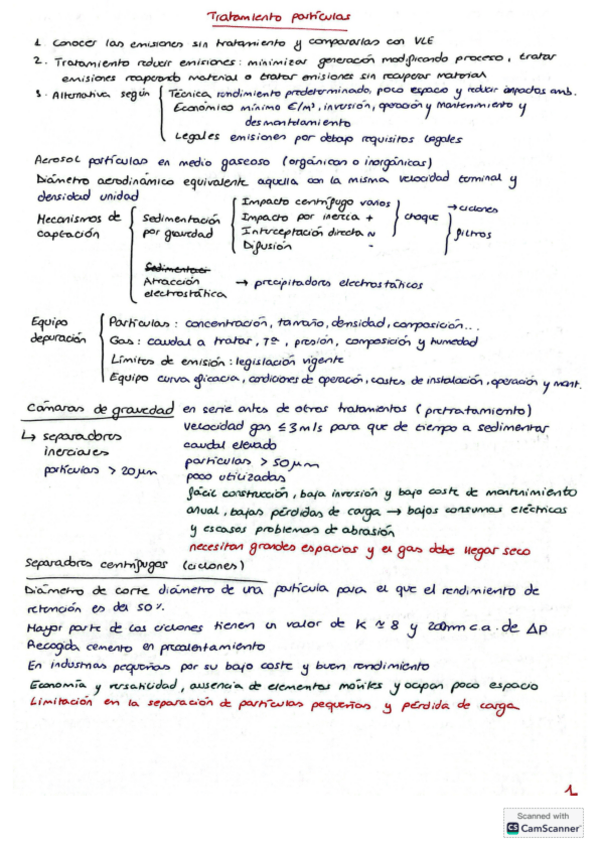 Tratamiento partículas
1. Conocer las emisiones sin tratamiento y compararlas con VLE
2. Tratamiento reducir emisiones: minimizar generación modificando proceso, tratar
emisiones recuperando material o tratar emisiones sin recuperar material
3. Alternativa según Técnica rendimiento predeterminado, poco espacio y reducir impactos amb.
Económico mínimo €/m³, inversión, operación y mantenimiento y
desmantelamiento
Legales emisiones por debajo requisitos legales
Aerosol partículas en medio gaseoso (orgánicas o inorgánicas)
Diámetro aerodinámico equivalente aquella con la misma velocidad terminal y
densidad unidad
Mecanismos de captación
Sedimentación por gravedad
Impacto centrífugo varios
Impacto por inercia +
Interceptación directa ~
Difusión -
choque
→ ciclones
filtros
Sedimentaci
Atracción electrostática → precipitadores electrostáticos
Equipo depuración
Partículas: concentración, tamaño, densidad, composición...
Gas: caudal a tratar, Tª, presión, composición y humedad
Límites de emisión: legislación vigente
Equipo curva eficacia, condiciones de operación, costes de instalación, operación y mant.
Cámaras de gravedad en serie antes de otros tratamientos (pretratamiento)
↳ separadores inerciales
partículas > 20 μm
velocidad gas ≤ 3 m/s para que de tiempo a sedimentar
caudal elevado
partículas > 50 μm
poco utilizadas
fácil construcción, baja inversión y bajo coste de mantenimiento
anual, bajas pérdidas de carga → bajos consumos eléctricos
y escasos problemas de abrasión
necesitan grandes espacios y el gas debe llegar seco
Separadores centrífugos (ciclones)
Diámetro de corte diámetro de una partícula para el que el rendimiento de
retención es del 50%.
Mayor parte de los ciclones tienen un valor de K ≈ 8 y 200mm c.a. de ΔP
Recogida cemento en precalentamiento
En industrias pequeñas por su bajo coste y buen rendimiento
Economía y versatilidad, ausencia de elementos móviles y ocupan poco espacio
Limitación en la separación de partículas pequeñas y pérdida de carga
1
Scanned with
CS CamScanner